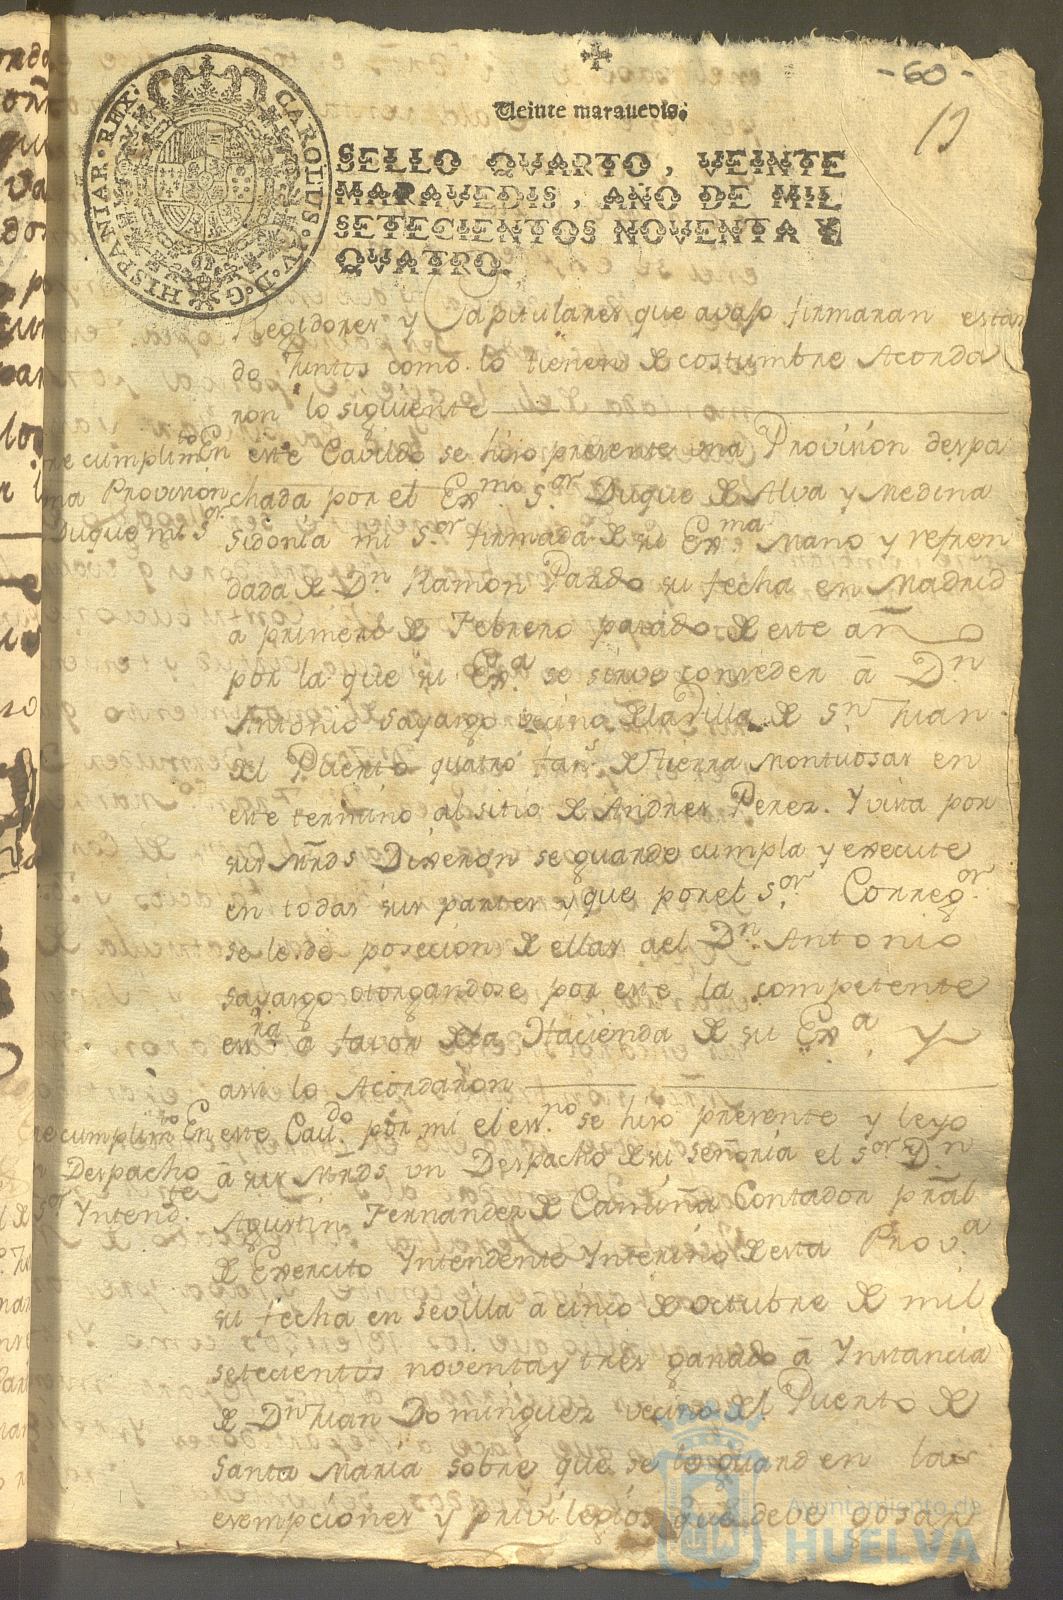 -60-
13
Veinte maravedis.
SELLO QVARTO, VEINTE
MARAVEDIS, AÑO DE MIL
SETECIENTOS NOVENTA Y
QVATRO.
CAROLUS · IV · D · G · HISPANIAR · REX ·
Regidores y Capitulares que avajo firmaran estan
do Juntos como lo tienen de costumbre Acorda
ron lo siguiente
En este Cavildo se hiso presente una Provision despa
chada por el Exmo. Sor. Duque de Alva y Medina
Sidonia mi Sor. firmada de su Exma. Mano y refren
dada de Dn. Ramon Pardo su fecha en Madrid
a primero de Febrero pasado de este añ
por la que su Exa. se sirve conseder â Dn
Antonio Sayargo vecino dela Villa de Sn Juan
del Puerto quatro fans. de tierra Montuosas en
este termino al sitio de Andres Perez. Y vista por
sus Mrds Dixeron se guarde cumpla y execute
en todas sus partes y que porel Sor. Corregor.
se le de posecion de ellas ael Dn. Antonio
Sayargo otorgandose por este la competente
essra â favor dela Hacienda de su Exa. Y
assi lo Acordaron
En este Cavdo. por mi el essno. se hiso presente y leyo
â sus Mrds un Despacho de su señoria el Sor Dn
Agustin Fernandez de Camiña Contador pral
de Exercito Yntendente Ynterino de esta Prova.
su fecha en Sevilla a cinco de Octubre de mil
setecientos noventa y tres ganado â Ynstancia
de Dn Juan Dominguez vecino del Puerto de
Santa Maria sobre que se le guarden las
exempciones y privilegios que debe gosar
re cumplimto
una Provision
Duque mi Sor
cumplimto
Despacho
Sor Yntendte.
Ayuntamiento de
HUELVA